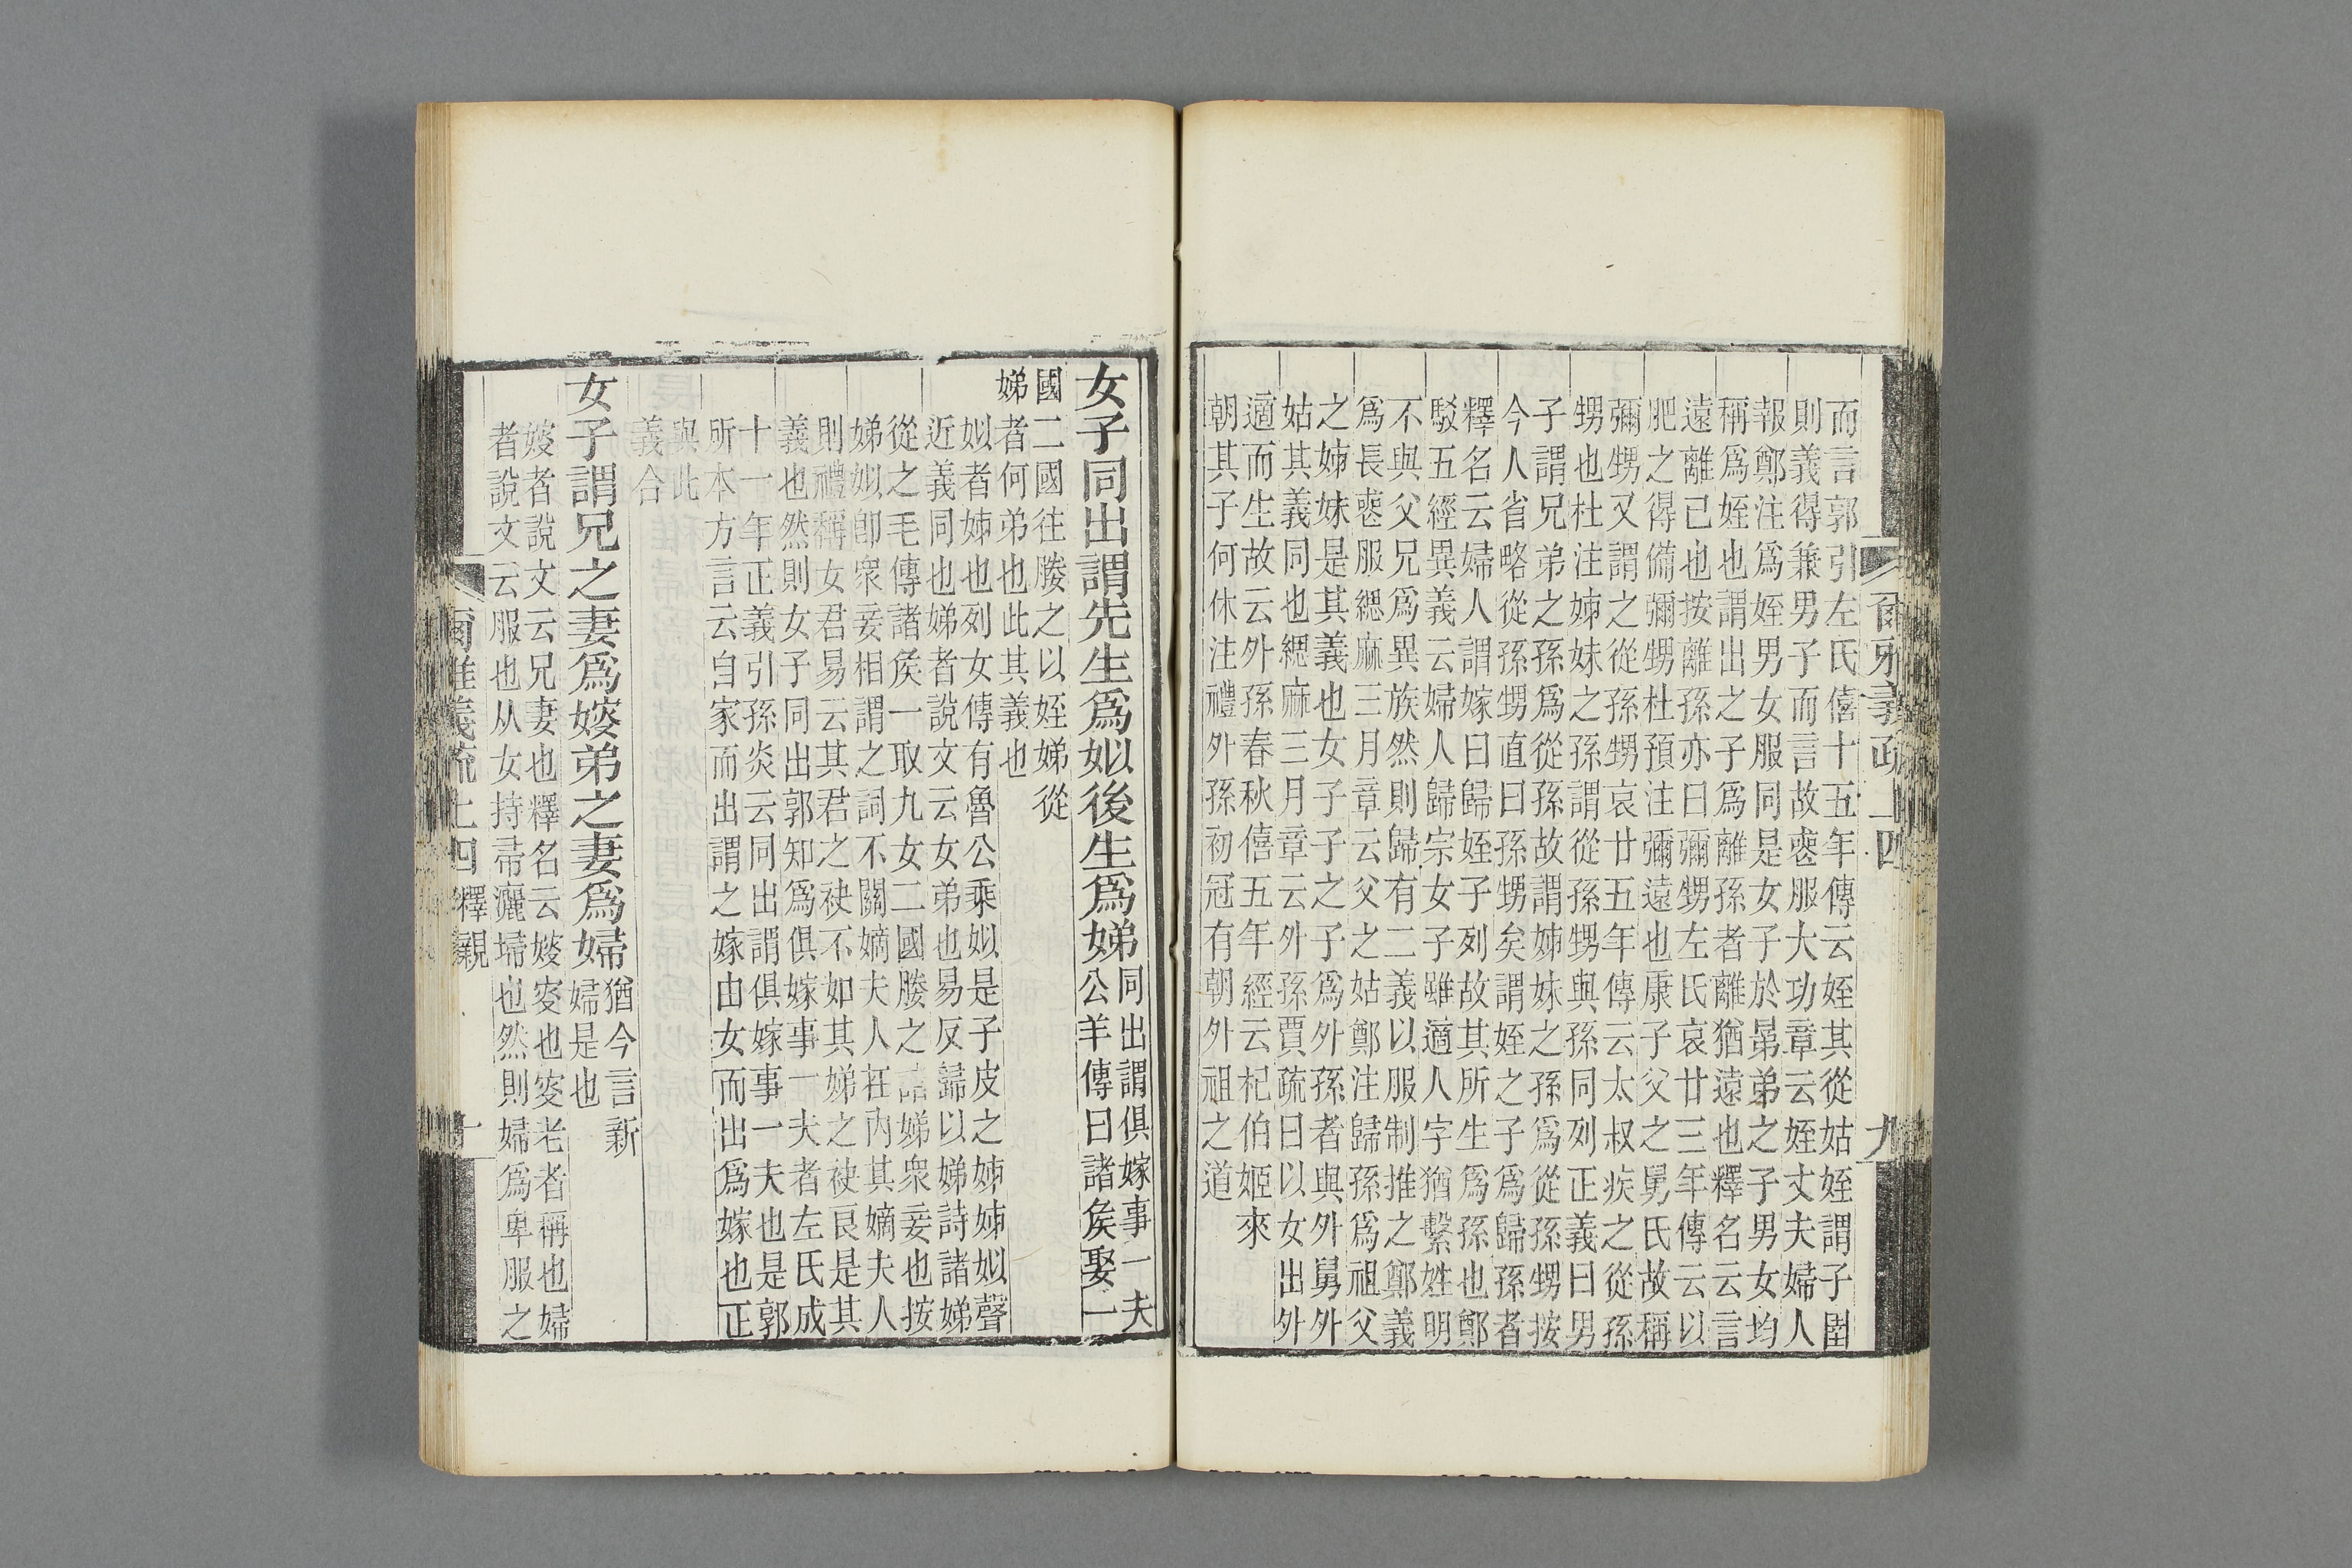 爾雅義疏
上四
九
而言郭引左氏僖十五年傳云姪其從姑姪謂子圉
則義得兼男子而言故喪服大功章云姪丈夫婦人
報鄭注爲姪男女服同是女子於昆弟之子男女均
稱爲姪也謂出之子爲離孫者離猶遠也釋名云言
遠離已也按離孫亦曰彌甥左氏哀廿三年傳云以
肥之得備彌甥杜預注彌遠也康子父之舅氏故稱
彌甥又謂之從孫甥哀廿五年傳云太叔疾之從孫
甥也杜注姊妹之孫謂從孫甥與孫同列正義曰男
子謂兄弟之孫爲從孫故謂姊妹之孫爲從孫甥按
今人省略從孫甥直曰孫甥矣謂姪之子爲歸孫者
釋名云婦人謂嫁曰歸姪子列故其所生爲孫也鄭
駁五經異義云婦人歸宗女子雖適人字猶繫姓明
不與父兄爲異族然則歸有二義以服制推之鄭義
爲長喪服緦麻三月章云父之姑鄭注歸孫爲祖父
之姊妹是其義也女子子之子爲外孫者與外舅外
姑其義同也緦麻三月章云外孫賈疏曰以女出外
適而生故云外孫春秋僖五年經云杞伯姬來
朝其子何休注禮外孫初冠有朝外祖之道
女子同出謂先生爲姒後生爲娣
同出謂俱嫁事一夫
公羊傳曰諸矦娶一
國二國往媵之以姪娣從
娣者何弟也此其義也
姒者姊也列女傳有魯公乘姒是子皮之姊姊姒聲
近義同也娣者說文云女弟也易反歸以娣詩諸娣
從之毛傳諸矦一取九女二國媵之諸娣衆妾也按
娣姒卽衆妾相謂之詞不關嫡夫人在內其嫡夫人
則禮稱女君易云其君之袂不如其娣之袂良是其
義也然則女子同出郭知爲俱嫁事一夫者左氏成
十一年正義引孫炎云同出謂俱嫁事一夫也是郭
所本方言云自家而出謂之嫁由女而出爲嫁也正
與此
義合
女子謂兄之妻爲嫂弟之妻爲婦
猶今言新
婦是也
嫂者說文云兄妻也釋名云嫂叜也叜老者稱也婦
者說文云服也从女持帚灑埽也然則婦爲卑服之
爾雅義疏上四 釋親
十